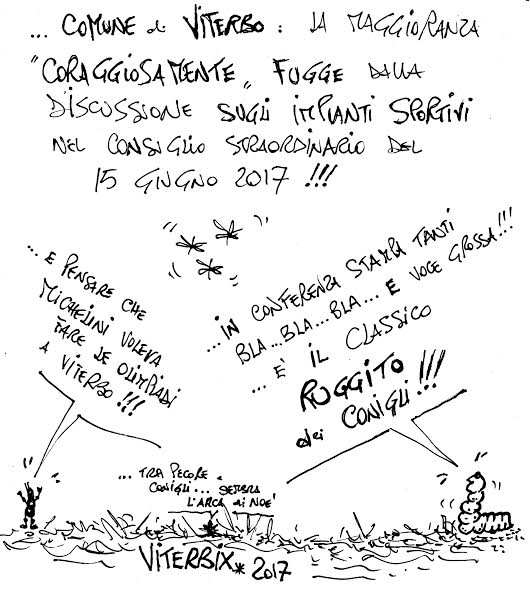 ... COMUNE di VITERBO: LA MAGGIORANZA
"CORAGGIOSAMENTE" FUGGE DALLA
DISCUSSIONE SUGLI IMPIANTI SPORTIVI
NEL CONSIGLIO STRAORDINARIO DEL
15 GIUGNO 2017 !!!
... E PENSARE CHE
MICHELINI VOLEVA
FARE LE OLIMPIADI
A VITERBO !!!
... IN CONFERENZA STAMPA TANTI
BLA... BLA... BLA... E VOCE GROSSA!!!
... E' IL CLASSICO
RUGGITO
dei CONIGLI!!!
... TRA PECORE E
CONIGLI... SEMBRA
L'ARCA di NOE'
VITERBIX * 2017